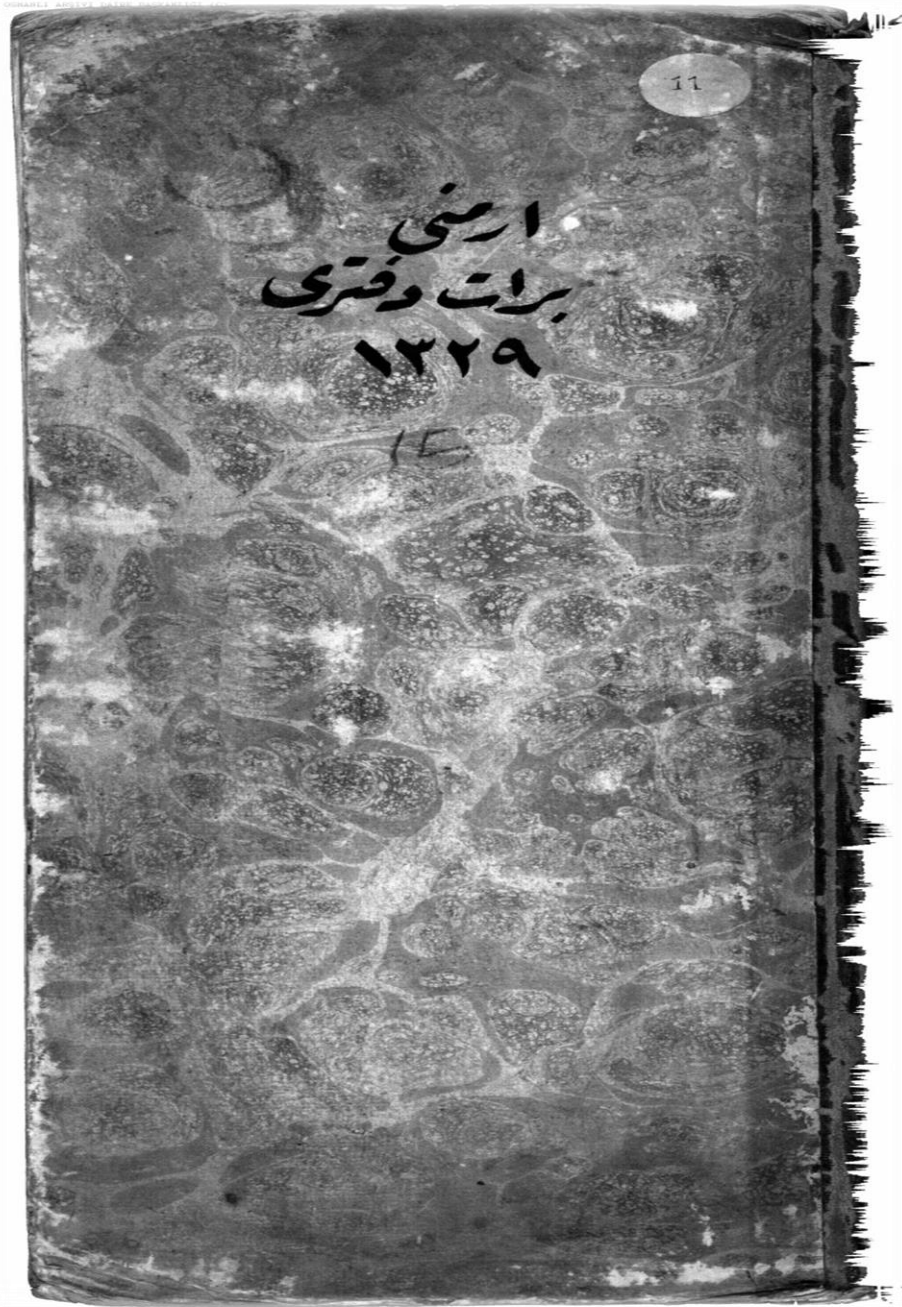 OSMANLI ARŞİVİ DAİRE BAŞKANLIĞI
11
ارمنی
برات دفتری
١٣٢٩